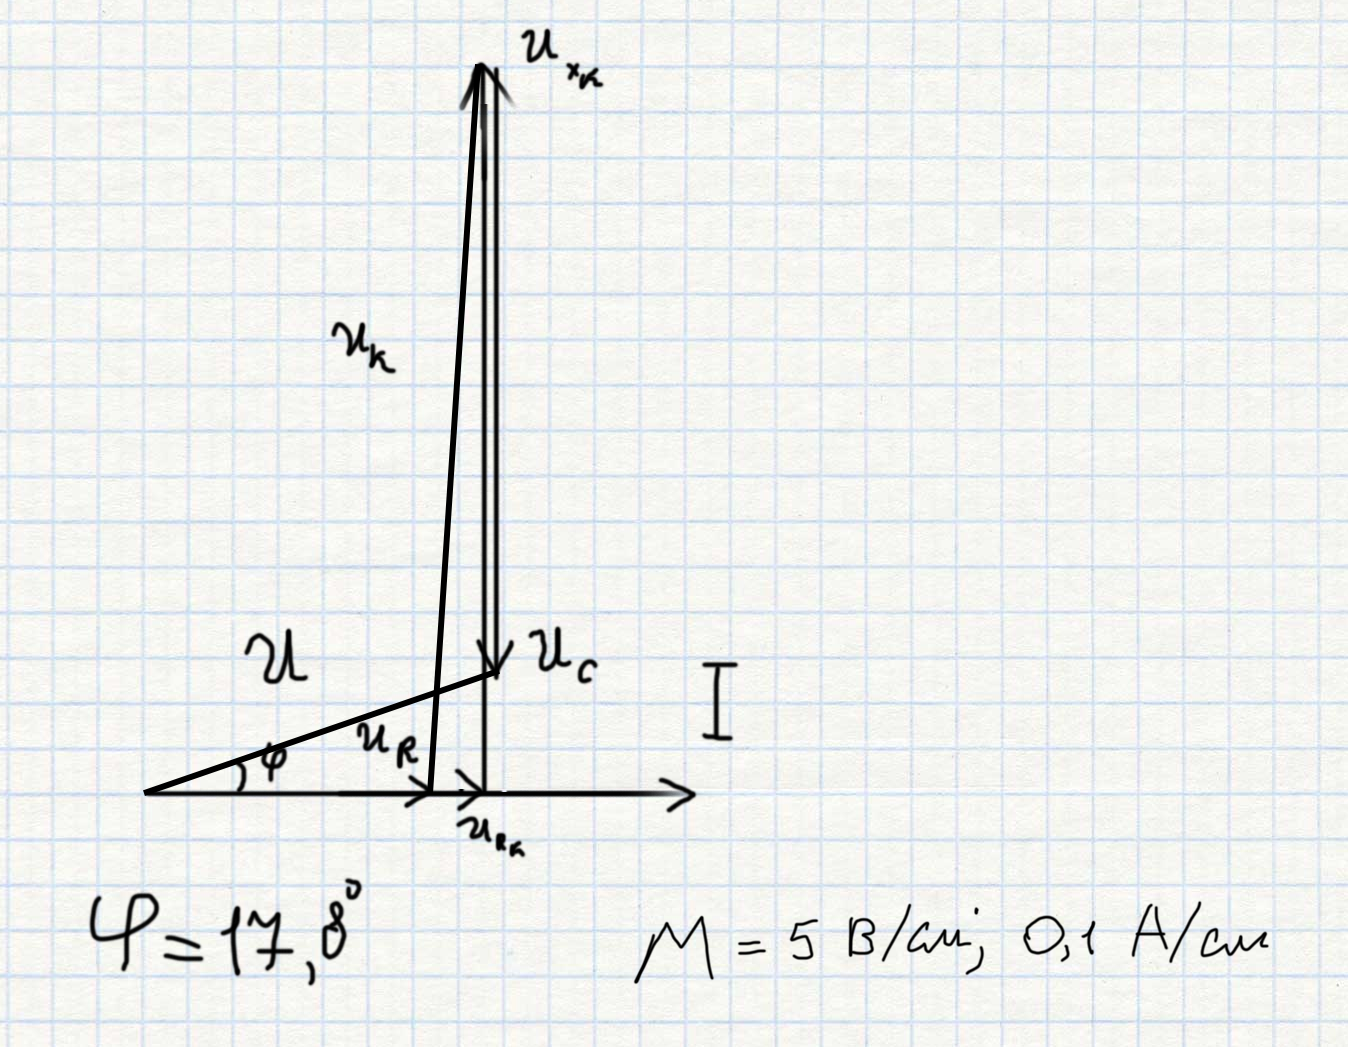 U_xк
U_к
U
U_C
I
φ
U_R
U_Rк
φ = 17,8°
M = 5 В/см; 0,1 А/см